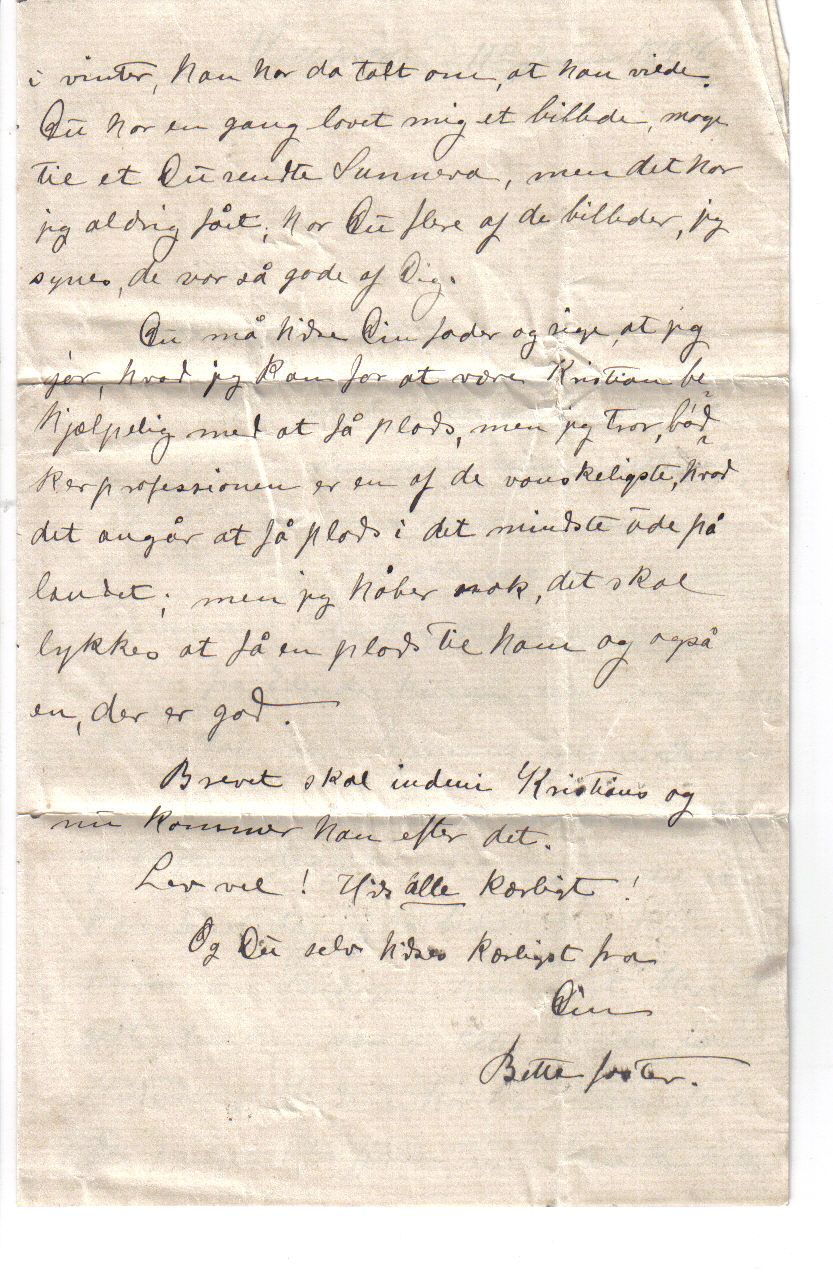 i vinter, han har da talt om, at han vilde.
Du har en gang lovet mig et billede, mage
til et Du sendte Sunneva, men det har
jeg aldrig fået; har Du flere af de billeder, jeg
synes, de var så gode af Dig.
Du må hilse Din fader og sige, at jeg
gør, hvad jeg kan for at være Kristian be-
hjælpelig med at få plads, men jeg tror, bød-
kerprofessionen er en af de vanskeligste, hvad
det angår at få plads i det mindste ude på
landet; men jeg håber nok, det skal
lykkes at få en plads til ham og også
en, der er god.
Brevet skal indeni Kristians og
nu kommer han efter det.
Lev vel! Hils alle kærligt!
Og Du selv hilses kærligst fra
Din
Bette faster.